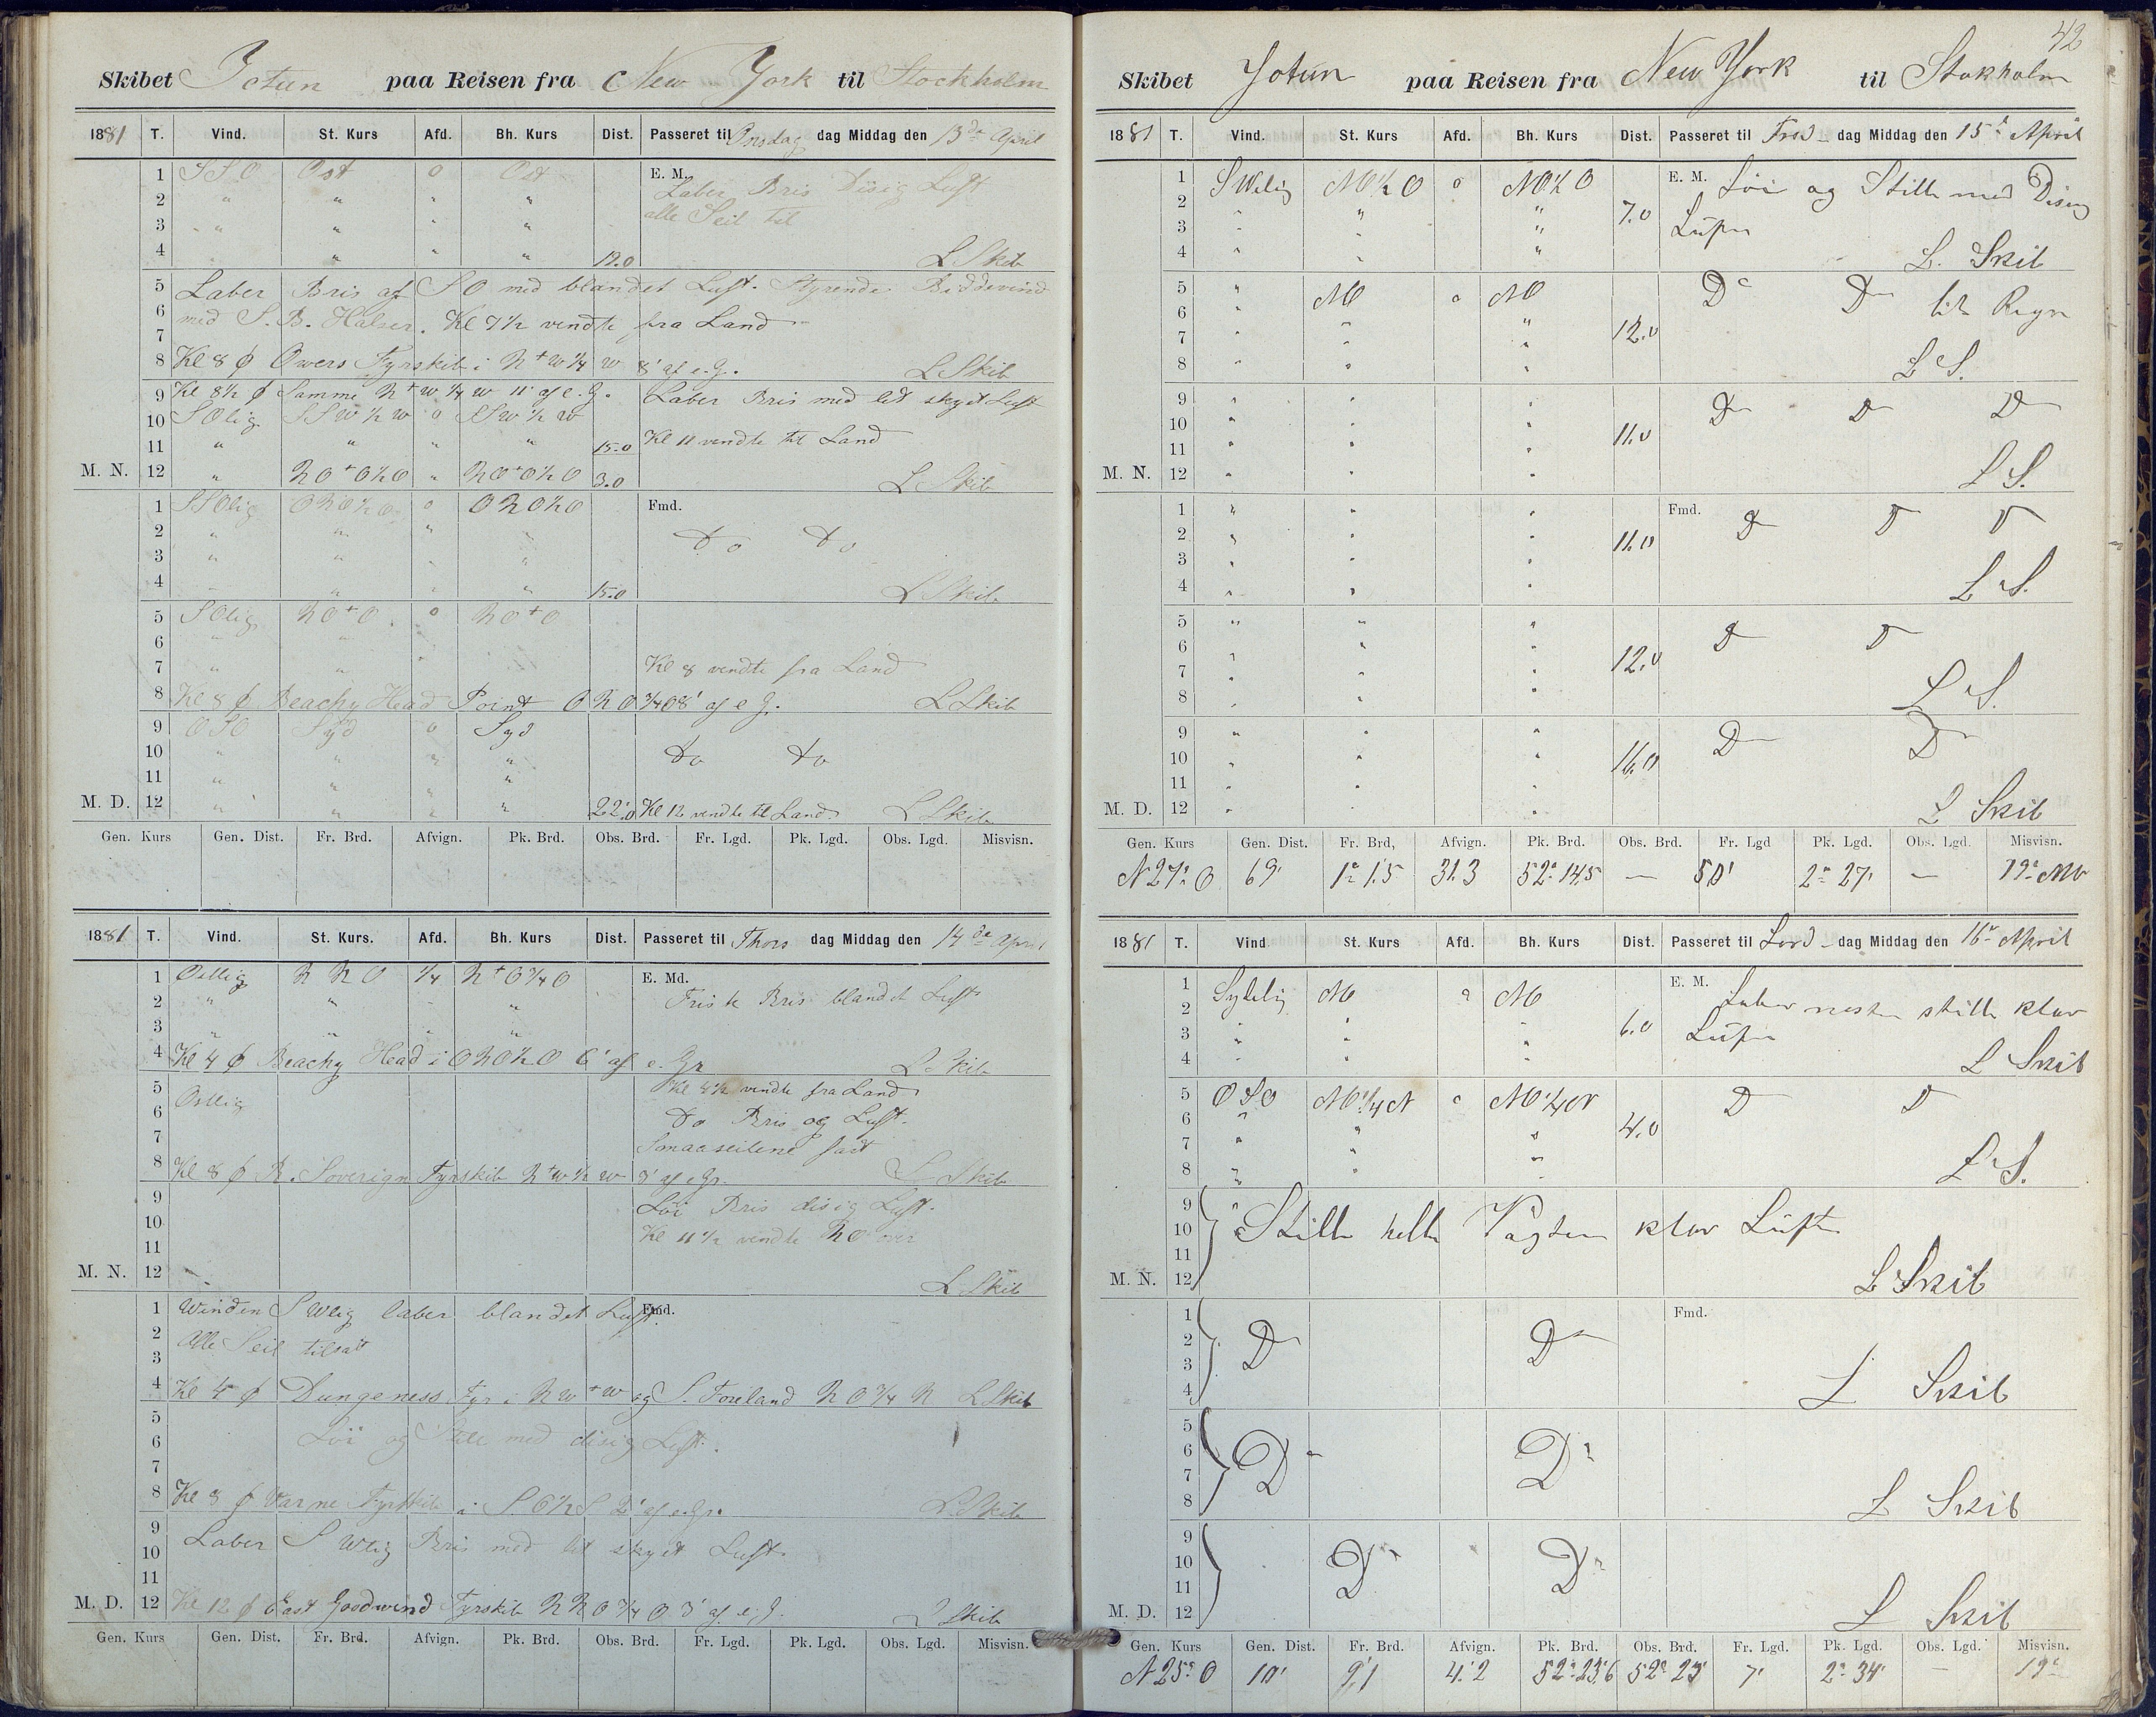 Skibet Jotun paa Reisen fra New York til Stockholm
1881 T. Vind. St. Kurs Afd. Bh. Kurs Dist. Passeret til Onsdag dag Middag den 13de April
1 SSO Ost o Ost E. M. Laber Bris Disig Luft
2 " " " " alle Seil til
3 " " " "
4 " " " 12.0 L Skib
5 Laber Bris af SO med blandet Luft. Styrende Biddevind
6 med S. B. Halser. Kl 7 1/2 vendte fra Land
7
8 Kl 8 ϕ Owers Fyrskib i N+W 1/4 W 8' af e. G. L Skib
9 Kl 8 1/2 ϕ Samme N+W 1/4 W 11' af e. G. Laber Bris med let skyet Luft
10 SOlig SSW 1/2 W o SSW 1/2 W
11 " " " " 15.0 Kl 11 vendte til Land
M. N. 12 " NO+O 1/2 O " NO+O 1/2 O 3.0 L Skib
1 SSOlig ONO 1/2 O o ONO 1/2 O Fmd.
2 " " " " Do Do
3 " " " "
4 " " " 15.0 L Skib
5 SOlig NO+O o NO+O
6 " "
7 " " Kl 8 vendte fra Land
8 Kl 8 ϕ Beachy Head Point ONO 3/4 O 8' af e G. L Skib
9 OSO Syd o Syd
10 " " " " Do Do
11 " " " "
M. D. 12 " " " " 22.0 Kl 12 vendte til Land. L Skib
Gen. Kurs Gen. Dist. Fr. Brd. Afvign. Pk. Brd. Obs. Brd. Fr. Lgd. Pk. Lgd. Obs. Lgd. Misvisn.
1881 T. Vind. St. Kurs. Afd. Bh. Kurs Dist. Passeret til Thors dag Middag den 14de April
1 Ostlig NNO 1/4 N+O 3/4 O E. Md.
2 " " " " Frisk Bris blandet Luft
3 " " " "
4 Kl 4 ϕ Beachy Head i ONO 1/2 O 6' af e. Gr L Skib
5 Ostlig Kl 4 1/2 vendte fra Land
6 Do Bris og Luft.
7 Smaaseilene fast
8 Kl 8 ϕ R. Soverign Fyrskib N+W 1/2 W 3' af e Gr. L Skib
9 Löi Bris disig Luft.
10 Kl 11 1/2 vendte NO over
11
M. N. 12 L Skib
1 Winden SWlig laber blandet Luft. Fmd.
2 Alle Seil tilsat
3
4 Kl 4 ϕ Dungeness Fyr i NW+W og S. Foreland NO 3/4 N L Skib
5
6 Löi og Stille med disig Luft.
7
8 Kl 8 ϕ Varne Fyrskib i S.O 1/2 S 2' af e. Gr. L Skib
9 Laber SWlig Bris med let skyet Luft.
10
11
M. D. 12 Kl 12 ϕ East Goodwind Fyrskib NNO 3/4 O 3' af e. G. L Skib
Gen. Kurs Gen. Dist. Fr. Brd. Afvign. Pk. Brd. Obs. Brd. Fr. Lgd. Pk. Lgd. Obs. Lgd. Misvisn.
42
Skibet Jotun paa Reisen fra New York til Stokholm
1881 T. Vind. St. Kurs Afd. Bh. Kurs Dist. Passeret til Fred- dag Middag den 15de April
1 SWelig NO 1/2 O o NO 1/2 O E. M. Löi og Still med Disig
2 " " " 7.0 Luft
3 " " "
4 " " " L. Skib
5 " NO o NO Do Do lit Regn
6 " " "
7 " " " 12.0
8 " " L S.
9 " " " Do Do Do
10 " " "
11 " " " 11.0
M. N. 12 " " " L S.
1 " " " Fmd. Do Do Do
2 " " " 11.0
3 " "
4 " " " L S.
5 " " " Do Do
6 " "
7 " " 12.0
8 " " " L S.
9 " " " Do Do
10 " " " 16.0
11 " " "
M. D. 12 " " L Skib
Gen. Kurs Gen. Dist. Fr. Brd, Afvign. Pk. Brd. Obs. Brd. Fr. Lgd Pk. Lgd. Obs. Lgd. Misvisn.
N 27° O 69' 1° 1.5 31.3 52° 14.5 — 50' 2° 27' — 19° NW
1881 T. Vind St. Kurs Afd. Bh. Kurs Dist. Passeret til Lørd- dag Middag den 16de April
1 Sydelig NO o NO E. M. Laber nesten stille klar
2 Luft
3 " " " 6.0
4 " " " L Skib
5 OSO NO 1/4 N o NO 1/4 N Do Do
6 " 4.0
7 " " "
8 " " " L S.
9 "
10 Still hele Vagten klar Luft
11
M. N. 12 L Skib
1 Fmd.
2 Do Do
3
4 L Skib
5
6 Do Do
7
8 L Skib
9
10 Do Do
11
M. D. 12 L Skib
Gen. Kurs Gen. Dist. Fr. Brd. Afvign. Pk. Brd. Obs. Brd. Fr. Lgd. Pk. Lgd. Obs. Lgd. Misvisn.
N 25° O 10' 9.1 4.2 52° 23.6 52° 23' 7' 2° 34' — 19°